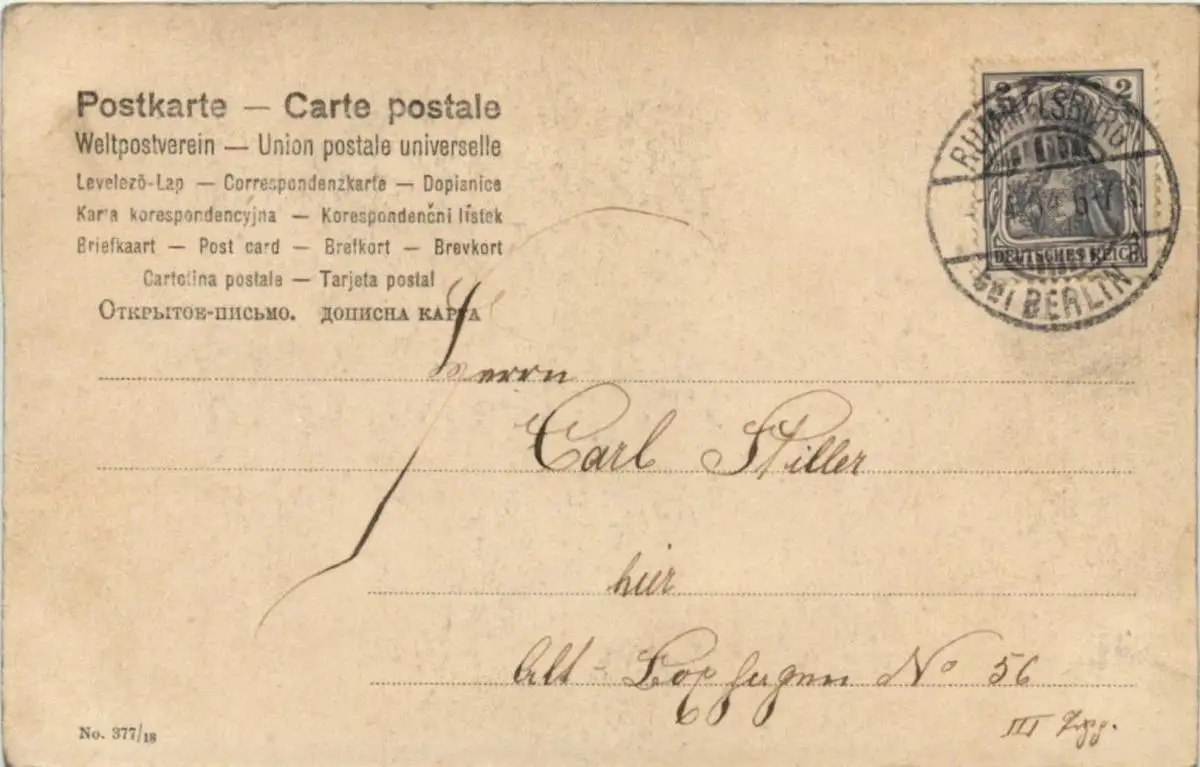 Postkarte — Carte postale
Weltpostverein — Union postale universelle
Levelező-Lap — Correspondenzkarte — Dopisnice
Karta korespondencyjna — Korespondenčni lístek
Briefkaart — Post card — Brefkort — Brevkort
Cartolina postale — Tarjeta postal
Открытое-письмо. дописна карта
2 2
DEUTSCHES REICH
RUMMELSBURG
6-7
bei BERLIN
Herrn
Carl Stiller
hier
Alt-Boxhagen No 56
III
No. 377/18